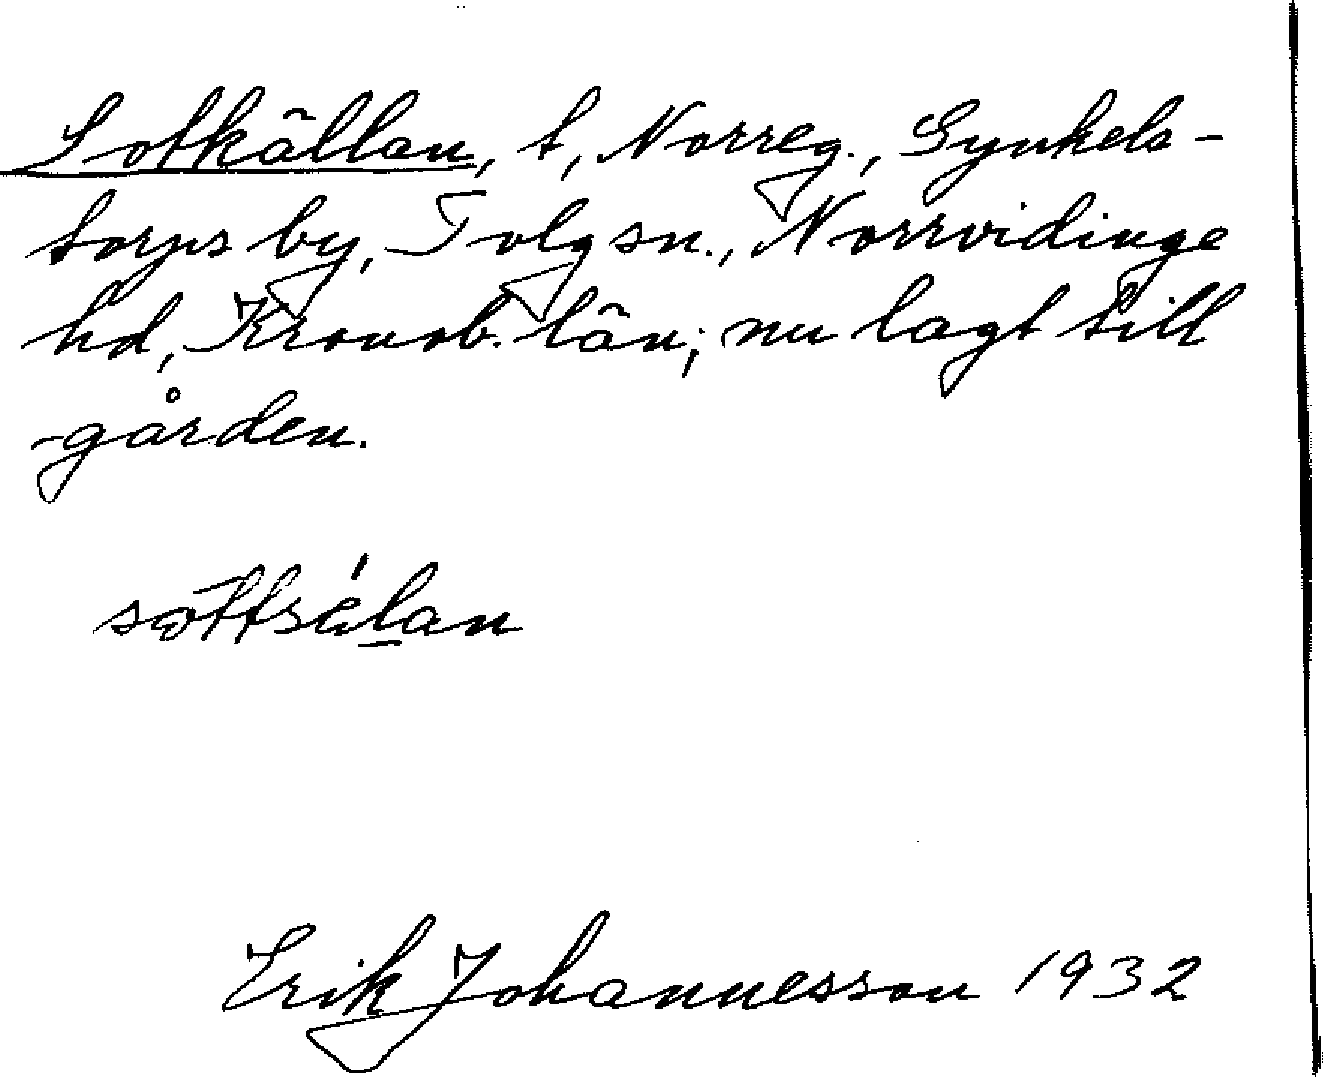 Sotkällan, t, Norreg., Synkels-
torps by, Tolg sn., Norrvidinge
hd, Kronob. län; nu lagt till
gården.
Erik Johannesson 1932